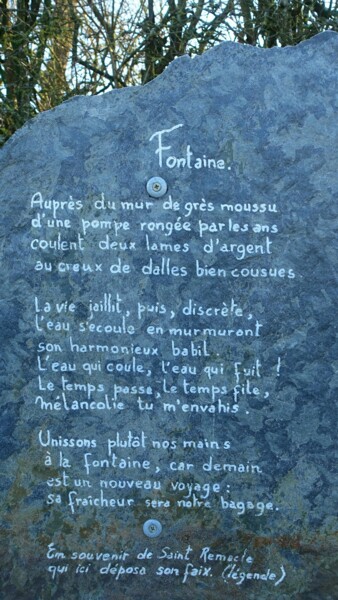 Fontaine.
Auprès du mur de grès moussu
d'une pompe rongée par les ans
coulent deux lames d'argent
au creux de dalles bien cousues
La vie jaillit, puis, discrète,
l'eau s'écoule en murmurant
son harmonieux babil.
L'eau qui coule, l'eau qui fuit !
Le temps passe, le temps file,
mélancolie tu m'envahis.
Unissons plutôt nos mains
à la fontaine, car demain
est un nouveau voyage :
sa fraîcheur sera notre bagage.
En souvenir de Saint Remacle
qui ici déposa son faix. (légende)